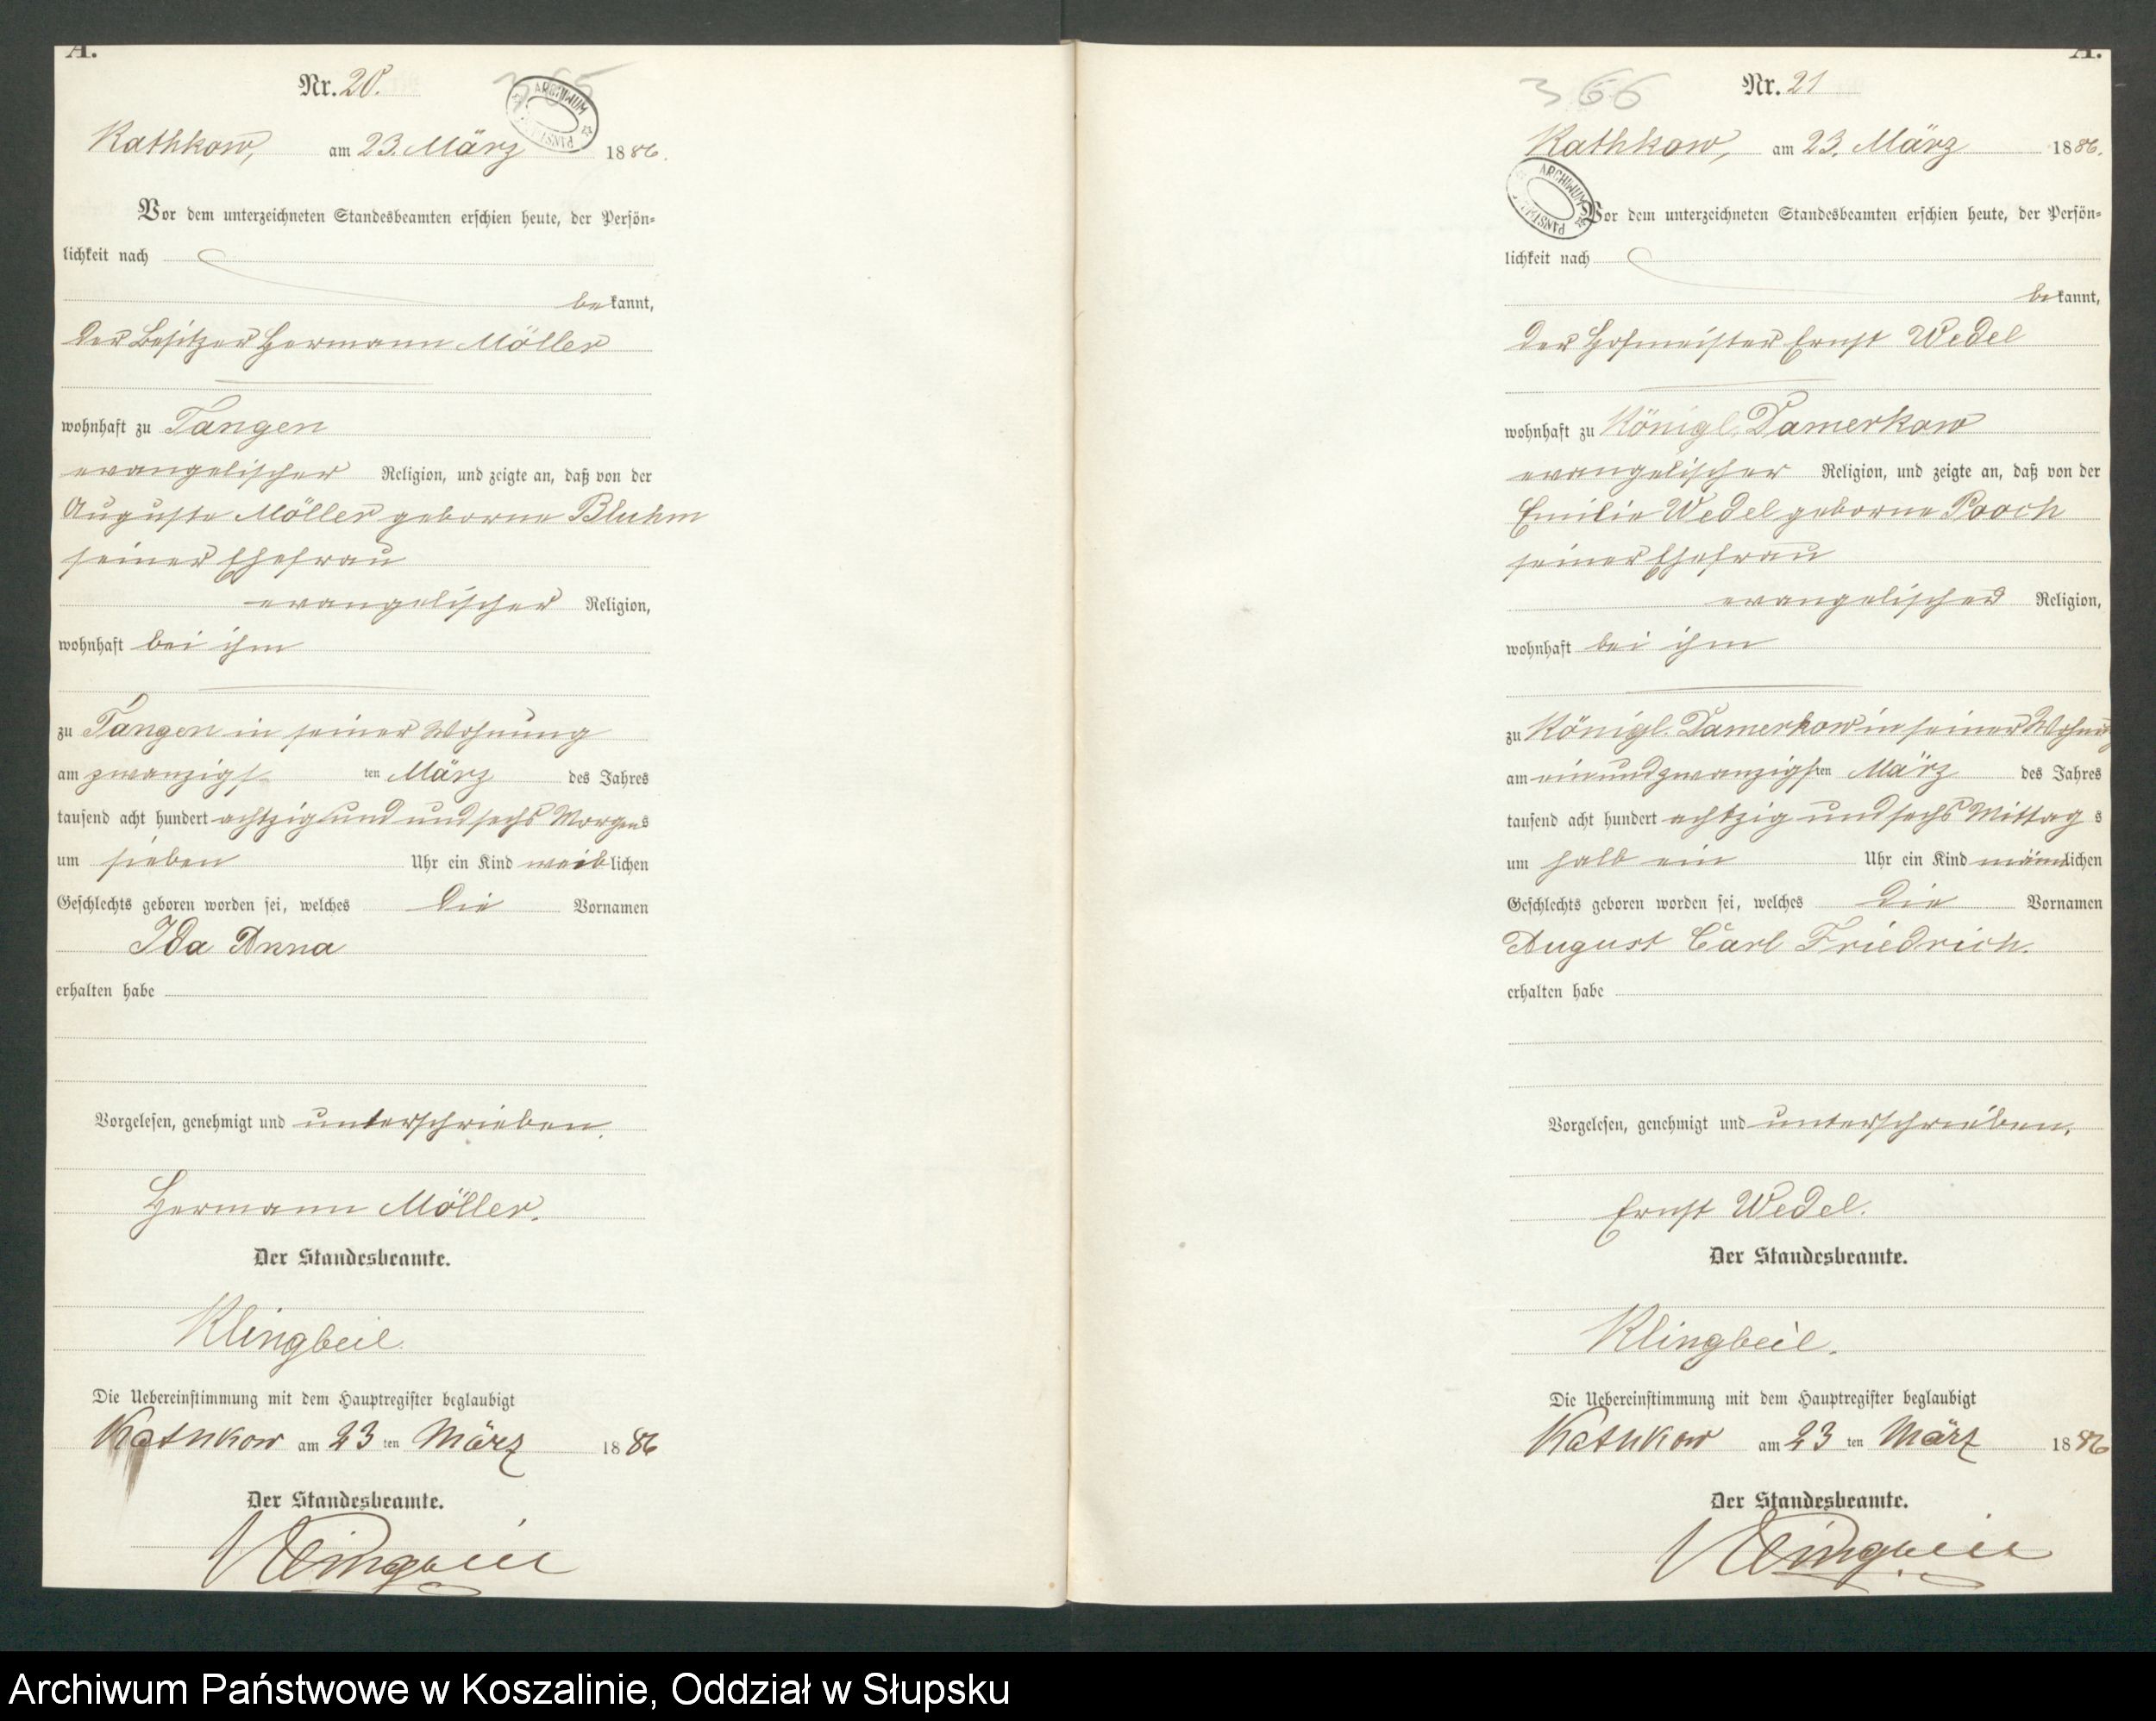 A.
Nr. 20.
365
ARCHIWUM PAŃSTW
Kathkow, am 23. März 1886.
Vor dem unterzeichneten Standesbeamten erschien heute, der Persön-
lichkeit nach
bekannt,
der Besitzer Hermann Möller
wohnhaft zu Tangen
evangelischer Religion, und zeigte an, daß von der
Auguste Möller geborne Bluhm
seiner Ehefrau
evangelischer Religion,
wohnhaft bei ihm
zu Tangen in seiner Wohnung
am zwanzigsten März des Jahres
tausend acht hundert achtzig und und sechs Morgens
um sieben Uhr ein Kind weiblichen
Geschlechts geboren worden sei, welches die Vornamen
Ida Anna
erhalten habe
Vorgelesen, genehmigt und unterschrieben.
Hermann Möller.
Der Standesbeamte.
Klingbeil.
Die Uebereinstimmung mit dem Hauptregister beglaubigt
Kathkow am 23 ten März 1886
Der Standesbeamte.
Klingbeil
A.
366
Nr. 21
Kathkow, am 23. März 1886.
ARCHIWUM PAŃSTW
Vor dem unterzeichneten Standesbeamten erschien heute, der Persön-
lichkeit nach
bekannt,
der Hofmeister Ernst Wedel
wohnhaft zu Königl. Damerkow
evangelischer Religion, und zeigte an, daß von der
Emilie Wedel geborne Pooch
seiner Ehefrau
evangelischer Religion,
wohnhaft bei ihm
zu Königl. Damerkow in seiner Wohnung
am einundzwanzigsten März des Jahres
tausend acht hundert achtzig und sechs Mittags
um halb ein Uhr ein Kind männlichen
Geschlechts geboren worden sei, welches die Vornamen
August Carl Friedrich.
erhalten habe
Vorgelesen, genehmigt und unterschrieben.
Ernst Wedel.
Der Standesbeamte.
Klingbeil.
Die Uebereinstimmung mit dem Hauptregister beglaubigt
Kathkow am 23 ten März 1886
Der Standesbeamte.
Klingbeil
Archiwum Państwowe w Koszalinie, Oddział w Słupsku